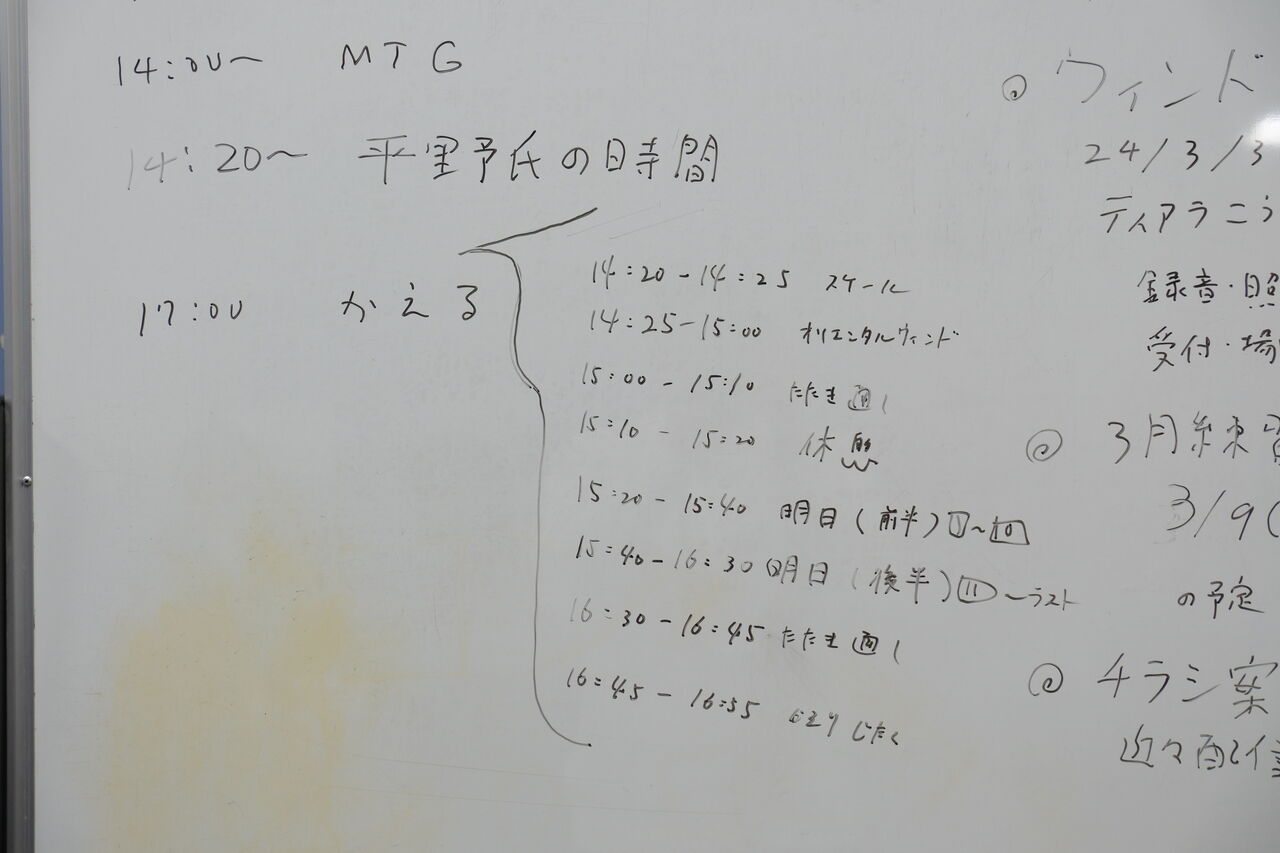 14:00〜 MTG
14:20〜 平野氏の時間
17:00 かえる
14:20-14:25 スケール
14:25-15:00 オリエンタルウィンド
15:00-15:10 たたき通し
15:10-15:20 休憩
15:20-15:40 明日(前半)
15:40-16:30 明日(後半) 11〜ラスト
16:30-16:45 たたき通し
16:45-16:55 じたく
ウィンド
24/3/3
ティアラこう
録音・照
受付・場
3月練習
3/9(
の予定
チラシ案
近々配信